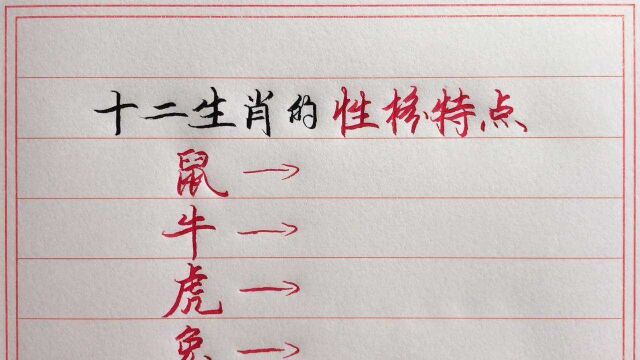 十二生肖的性格特点
鼠→
牛→
虎→
兔→